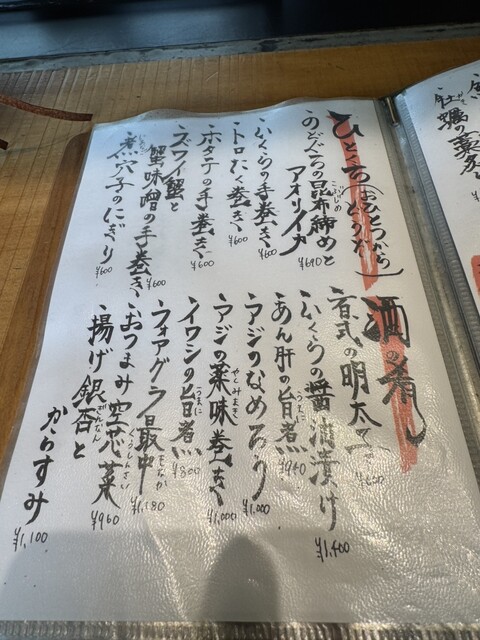 ひとくち(おひとつからどうぞ)
のどぐろの昆布締めと
こぶじめ
アオリイカ
¥690
いくらの手巻き
¥600
トロたく巻き
¥600
ホタテの手巻き
¥600
ズワイ蟹と
蟹味噌の手巻き
¥600
煮穴子のにぎり
¥600
酒の肴
の明太子
いくらの醤油漬け
¥1,400
あん肝の旨煮
うまに
¥940
アジのなめろう
¥1,000
アジの薬味巻き
やくみまき
¥1,000
イワシの旨煮
うまに
¥800
フォアグラ最中
もなか
¥1,180
おつまみ空芯菜
くうしんさい
¥960
揚げ銀杏と
ぎんなん
からすみ
¥1,100
牡蠣の